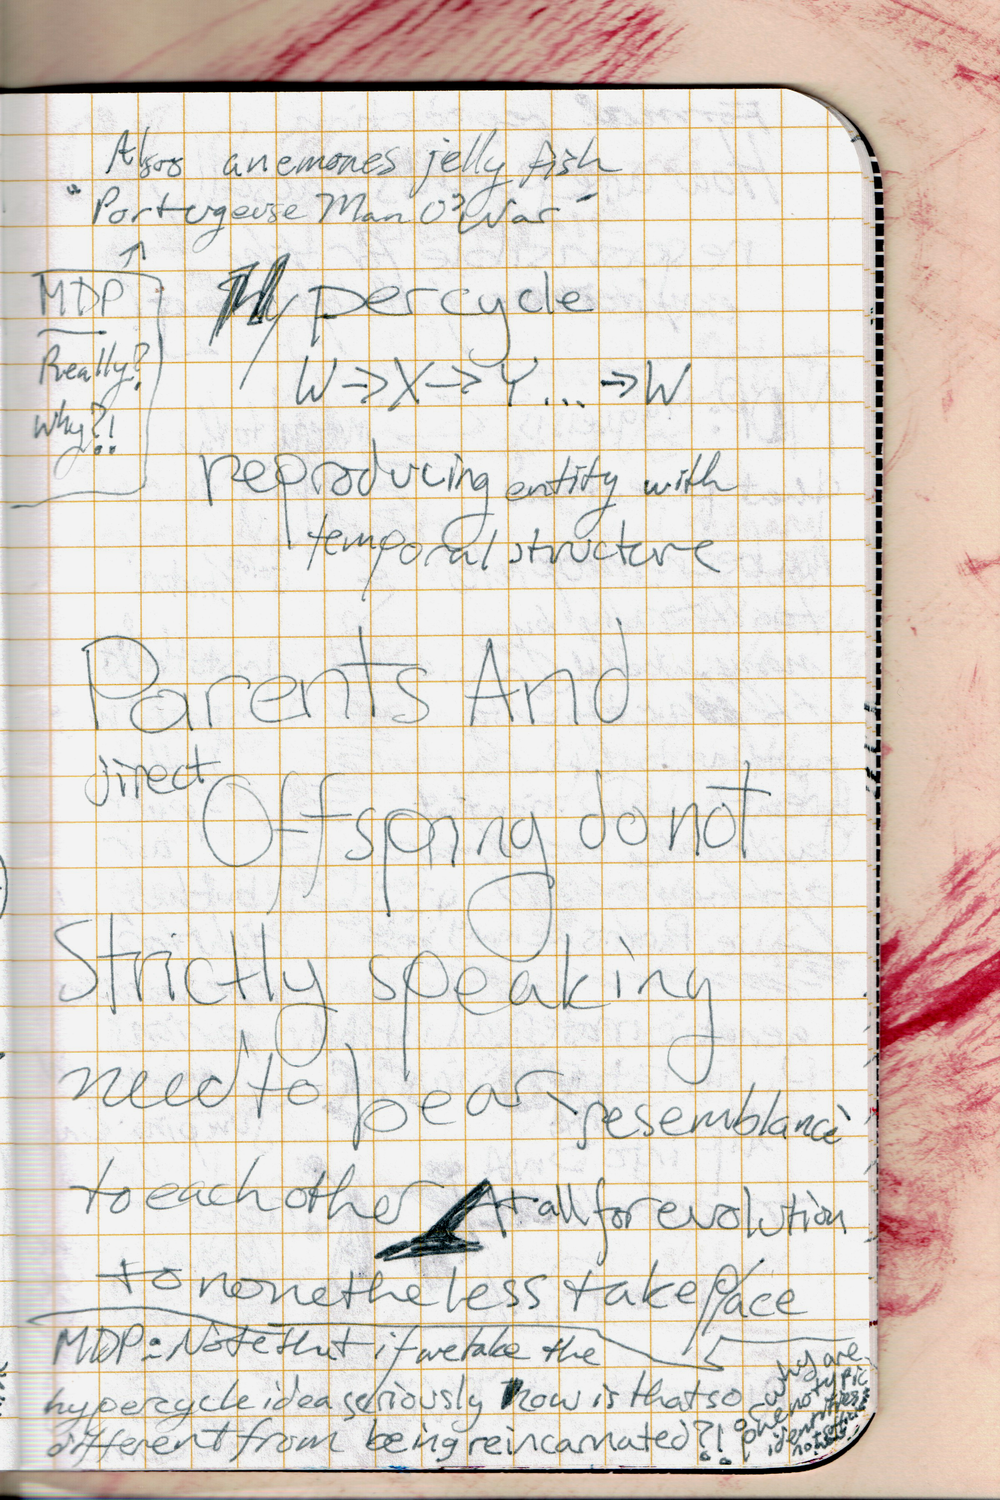 Also anemones jelly fish
"Portugeuse Man O' War"
MDP
Really?
why?!
Hypercycle
W → X → Y ... → W
reproducing entity with
temporal structure
Parents And
direct Offspring do not
Strictly speaking
need to bear resemblance
to each other At all for evolution
to nonetheless take place
MDP: Note that if we take the
hypercycle idea seriously how is that so
different from being reincarnated?!
why are
phenotypic
identities
not